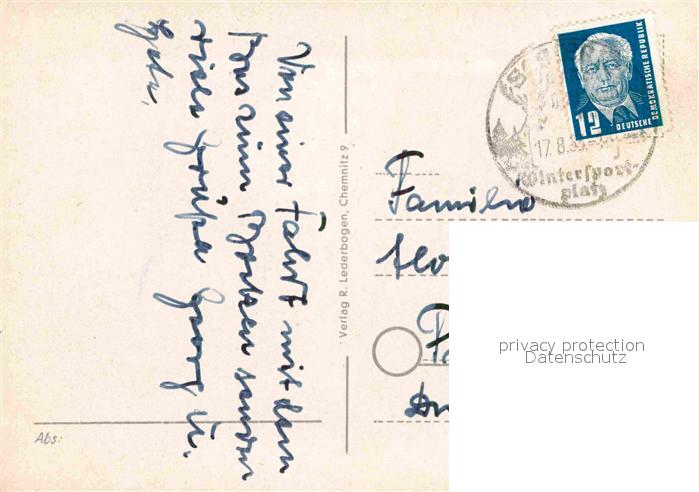 Von einer Fahrt mit dem
Bus zum Bocken senden
viele Grüße Georg u.
Verlag R. Lederbogen, Chemnitz 9
Abs:
12
DEUTSCHE
DEMOKRATISCHE REPUBLIK
17.8.
Wintersport-
platz
Familie
privacy protection
Datenschutz